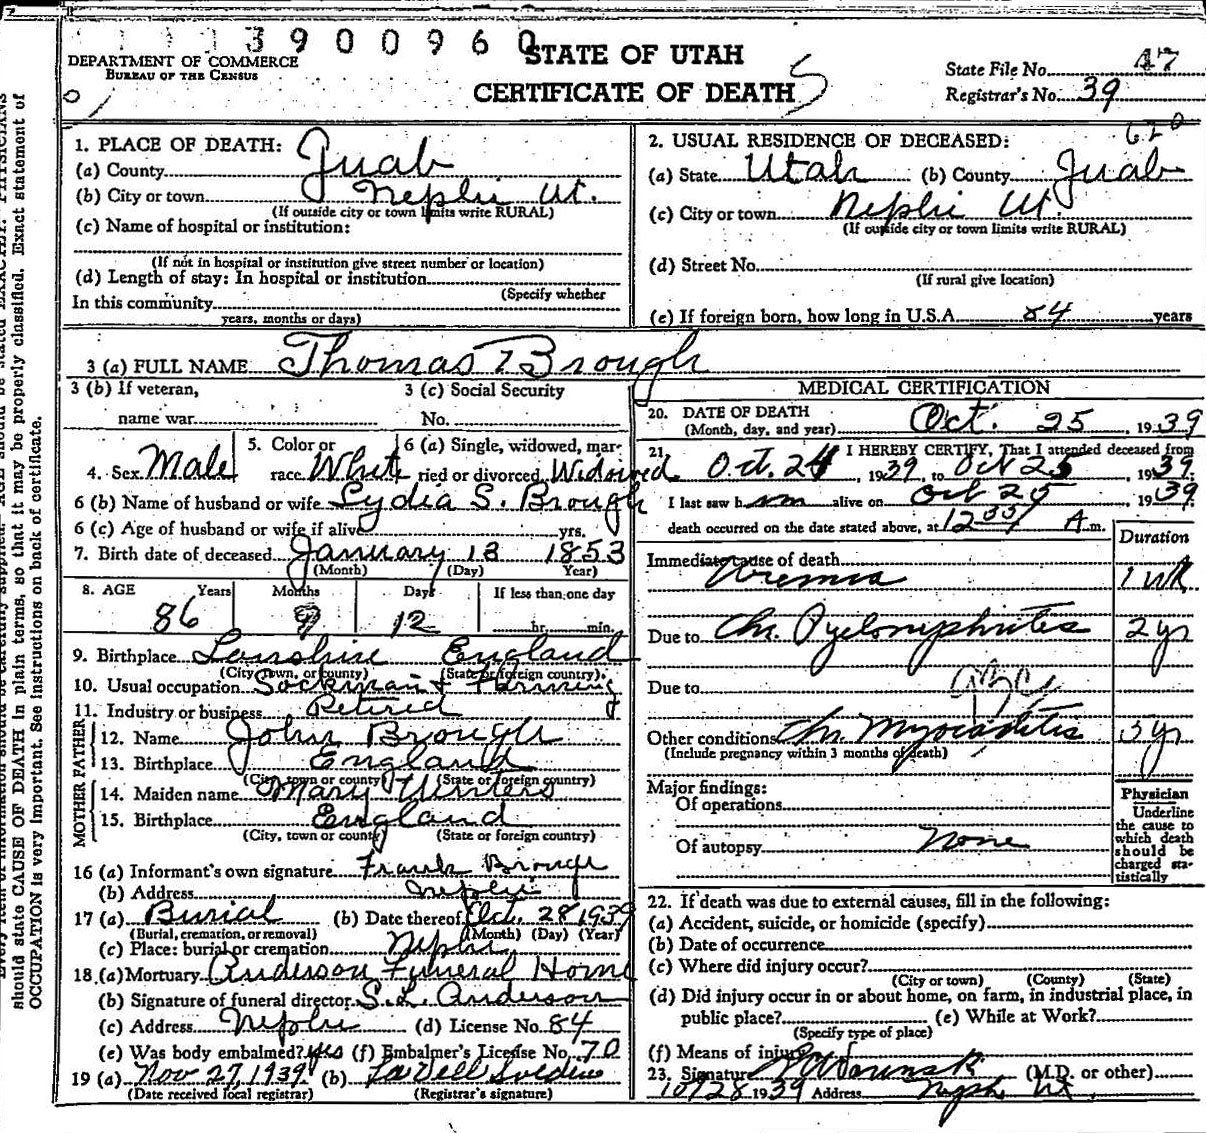 3900960
STATE OF UTAH
CERTIFICATE OF DEATH
DEPARTMENT OF COMMERCE
BUREAU OF THE CENSUS
State File No. 47
Registrar's No. 39
should state CAUSE OF DEATH in plain terms, so that it may be properly classified. Exact statement of
OCCUPATION is very important. See instructions on back of certificate.
1. PLACE OF DEATH:
(a) County Juab
(b) City or town Nephi Ut.
(If outside city or town limits write RURAL)
(c) Name of hospital or institution:
(If not in hospital or institution give street number or location)
(d) Length of stay: In hospital or institution
(Specify whether
In this community
years, months or days)
2. USUAL RESIDENCE OF DECEASED: 620
(a) State Utah (b) County Juab
(c) City or town Nephi Ut.
(If outside city or town limits write RURAL)
(d) Street No.
(If rural give location)
(e) If foreign born, how long in U.S.A. 84 years
3 (a) FULL NAME Thomas Brough
3 (b) If veteran, 3 (c) Social Security
name war No.
4. Sex Male 5. Color or race White 6 (a) Single, widowed, married or divorced Widowed
6 (b) Name of husband or wife Lydia S. Brough
6 (c) Age of husband or wife if alive yrs.
7. Birth date of deceased January 13 1853
(Month) (Day) Year)
8. AGE Years Months Days If less than one day
86 9 12 hr. min.
9. Birthplace Lanshire England
(City, town, or county) (State or foreign country)
10. Usual occupation Farming
11. Industry or business Retired
FATHER
12. Name John Brough
13. Birthplace England
(City, town or county) (State or foreign country)
MOTHER
14. Maiden name Mary Winters
15. Birthplace England
(City, town or county) (State or foreign country)
16 (a) Informant's own signature Frank Brough
(b) Address Nephi
17 (a) Burial (b) Date thereof Oct. 28 1939
(Burial, cremation, or removal) (Month) (Day) (Year)
(c) Place: burial or cremation Nephi
18. (a) Mortuary Anderson Funeral Home
(b) Signature of funeral director S. L. Anderson
(c) Address Nephi (d) License No. 84
(e) Was body embalmed? yes (f) Embalmer's License No. 70
19 (a) Nov 27, 1939 (b)
(Date received local registrar) (Registrar's signature)
MEDICAL CERTIFICATION
20. DATE OF DEATH
(Month, day, and year) Oct. 25, 1939
21. I HEREBY CERTIFY, That I attended deceased from
Oct. 24, 1939, to Oct 25, 1939.
I last saw him alive on Oct 25 1939
death occurred on the date stated above, at A m.
Duration
Immediate cause of death
Uremia 1 wk
Due to Chr. Pyelonephritis 2 yr
Due to
Other conditions Chr. Myocarditis 3 yr
(Include pregnancy within 3 months of death)
Major findings:
Of operations
Of autopsy None
Physician
Underline
the cause to
which death
should be
charged sta-
tistically
22. If death was due to external causes, fill in the following:
(a) Accident, suicide, or homicide (specify)
(b) Date of occurrence
(c) Where did injury occur?
(City or town) (County) (State)
(d) Did injury occur in or about home, on farm, in industrial place, in
public place? (e) While at Work?
(Specify type of place)
(f) Means of injury
23. Signature (M.D. or other)
10/28 1939 Address Nephi Ut.